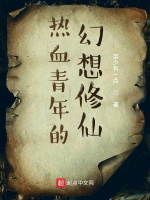 热血青年的
幻想修仙
著
起点中文网